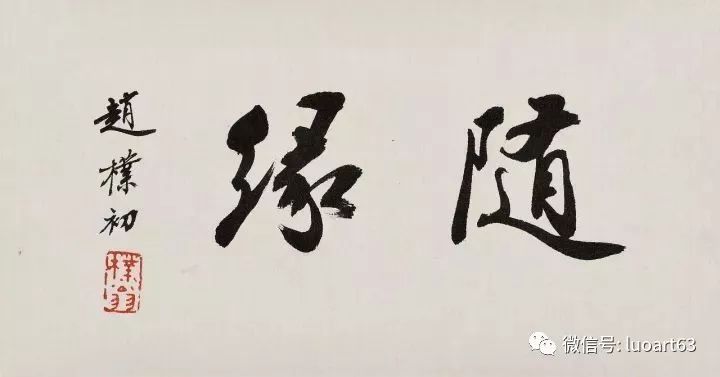 随緣
趙樸初
樸翁
微信号: luoart63